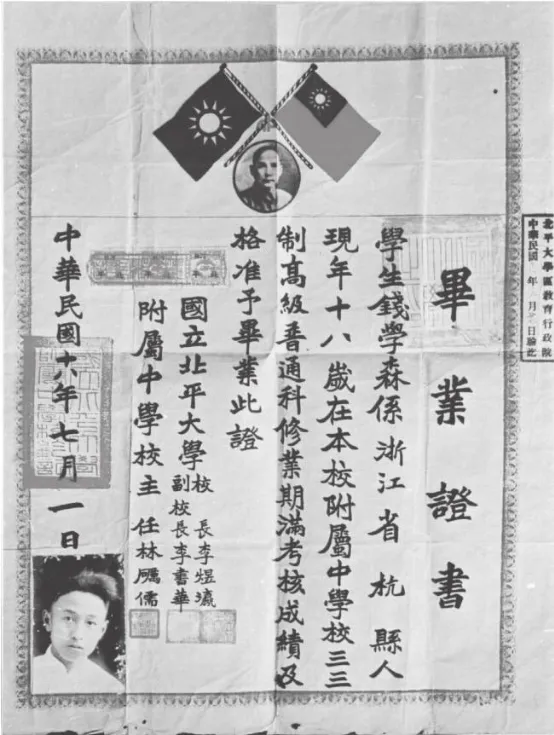 北平大學區教育行政院
中華民國 年 月 日驗
畢業證書
學生錢學森係浙江省杭縣人
現年十八歲在本校附屬中學校三三
制高級普通科修業期滿考核成績及
格准予畢業此證
國立北平大學校長李煜瀛
副校長李書華
附屬中學校主任林礪儒
中華民國十八年七月一日